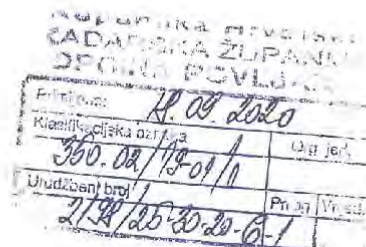 Republika Hrvatska
ZADARSKA ŽUPANIJA
OPĆINA POVLJANA
Primljeno:
09. 2020
Klasifikacijska oznaka
Org. jed.
350-02/19-01/1
Urudžbeni broj
Prilog
2198/25-30-20-6-1